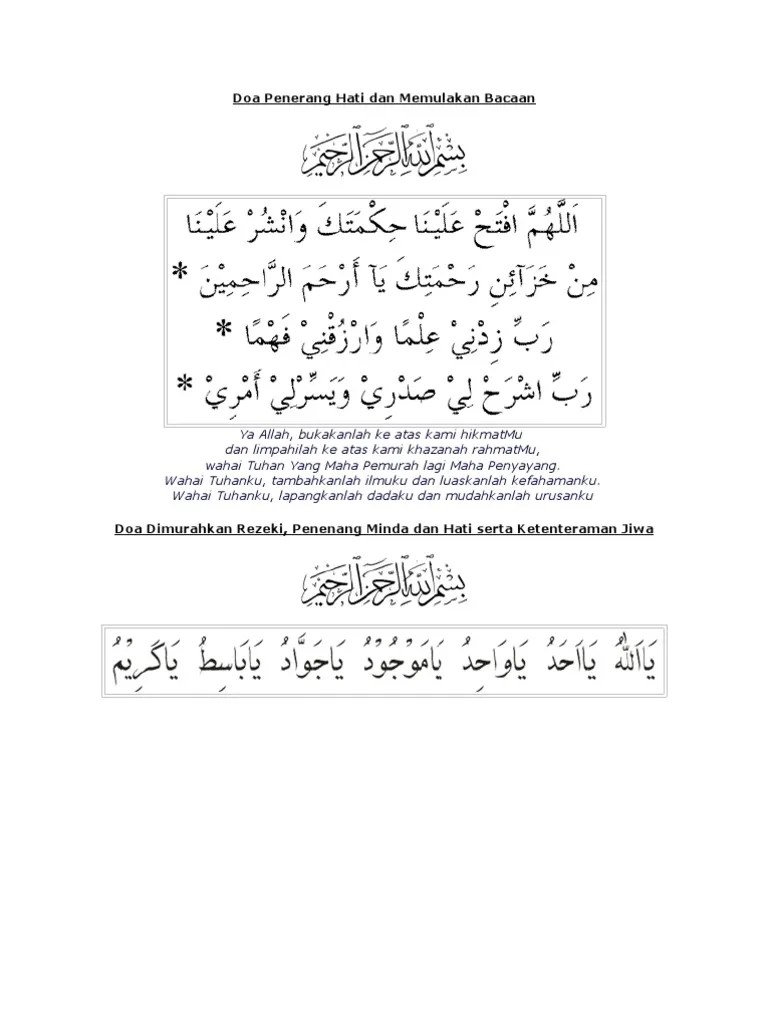 Doa Penerang Hati dan Memulakan Bacaan
بِسْمِ اللَّهِ الرَّحْمَٰنِ الرَّحِيمِ
اَللَّهُمَّ افْتَحْ عَلَيْنَا حِكْمَتَكَ وَانْشُرْ عَلَيْنَا
مِنْ خَزَآئِنِ رَحْمَتِكَ يَآ أَرْحَمَ الرَّاحِمِيْنَ *
رَبِّ زِدْنِيْ عِلْمًا وَارْزُقْنِيْ فَهْمًا *
رَبِّ اشْرَحْ لِيْ صَدْرِيْ وَيَسِّرْلِيْ أَمْرِيْ *
Ya Allah, bukakanlah ke atas kami hikmatMu
dan limpahilah ke atas kami khazanah rahmatMu,
wahai Tuhan Yang Maha Pemurah lagi Maha Penyayang.
Wahai Tuhanku, tambahkanlah ilmuku dan luaskanlah kefahamanku.
Wahai Tuhanku, lapangkanlah dadaku dan mudahkanlah urusanku
Doa Dimurahkan Rezeki, Penenang Minda dan Hati serta Ketenteraman Jiwa
بِسْمِ اللَّهِ الرَّحْمَٰنِ الرَّحِيمِ
يَااَللّٰهُ يَااَحَدُ يَاوَاحِدُ يَامَوْجُوْدُ يَاجَوَّادُ يَابَاسِطُ يَاكَرِيْمُ